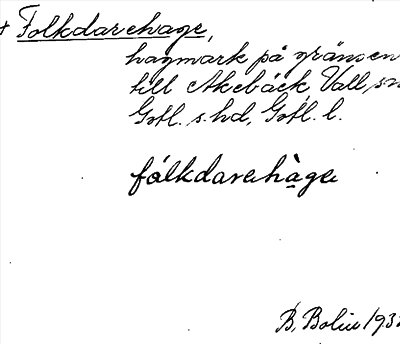 + Folkdarehage,
hagmark på gränsen
till Akebäck, Vall sn
Gotl. s. hd, Gotl. l.
fålkdarehàge
B. Bolin 193